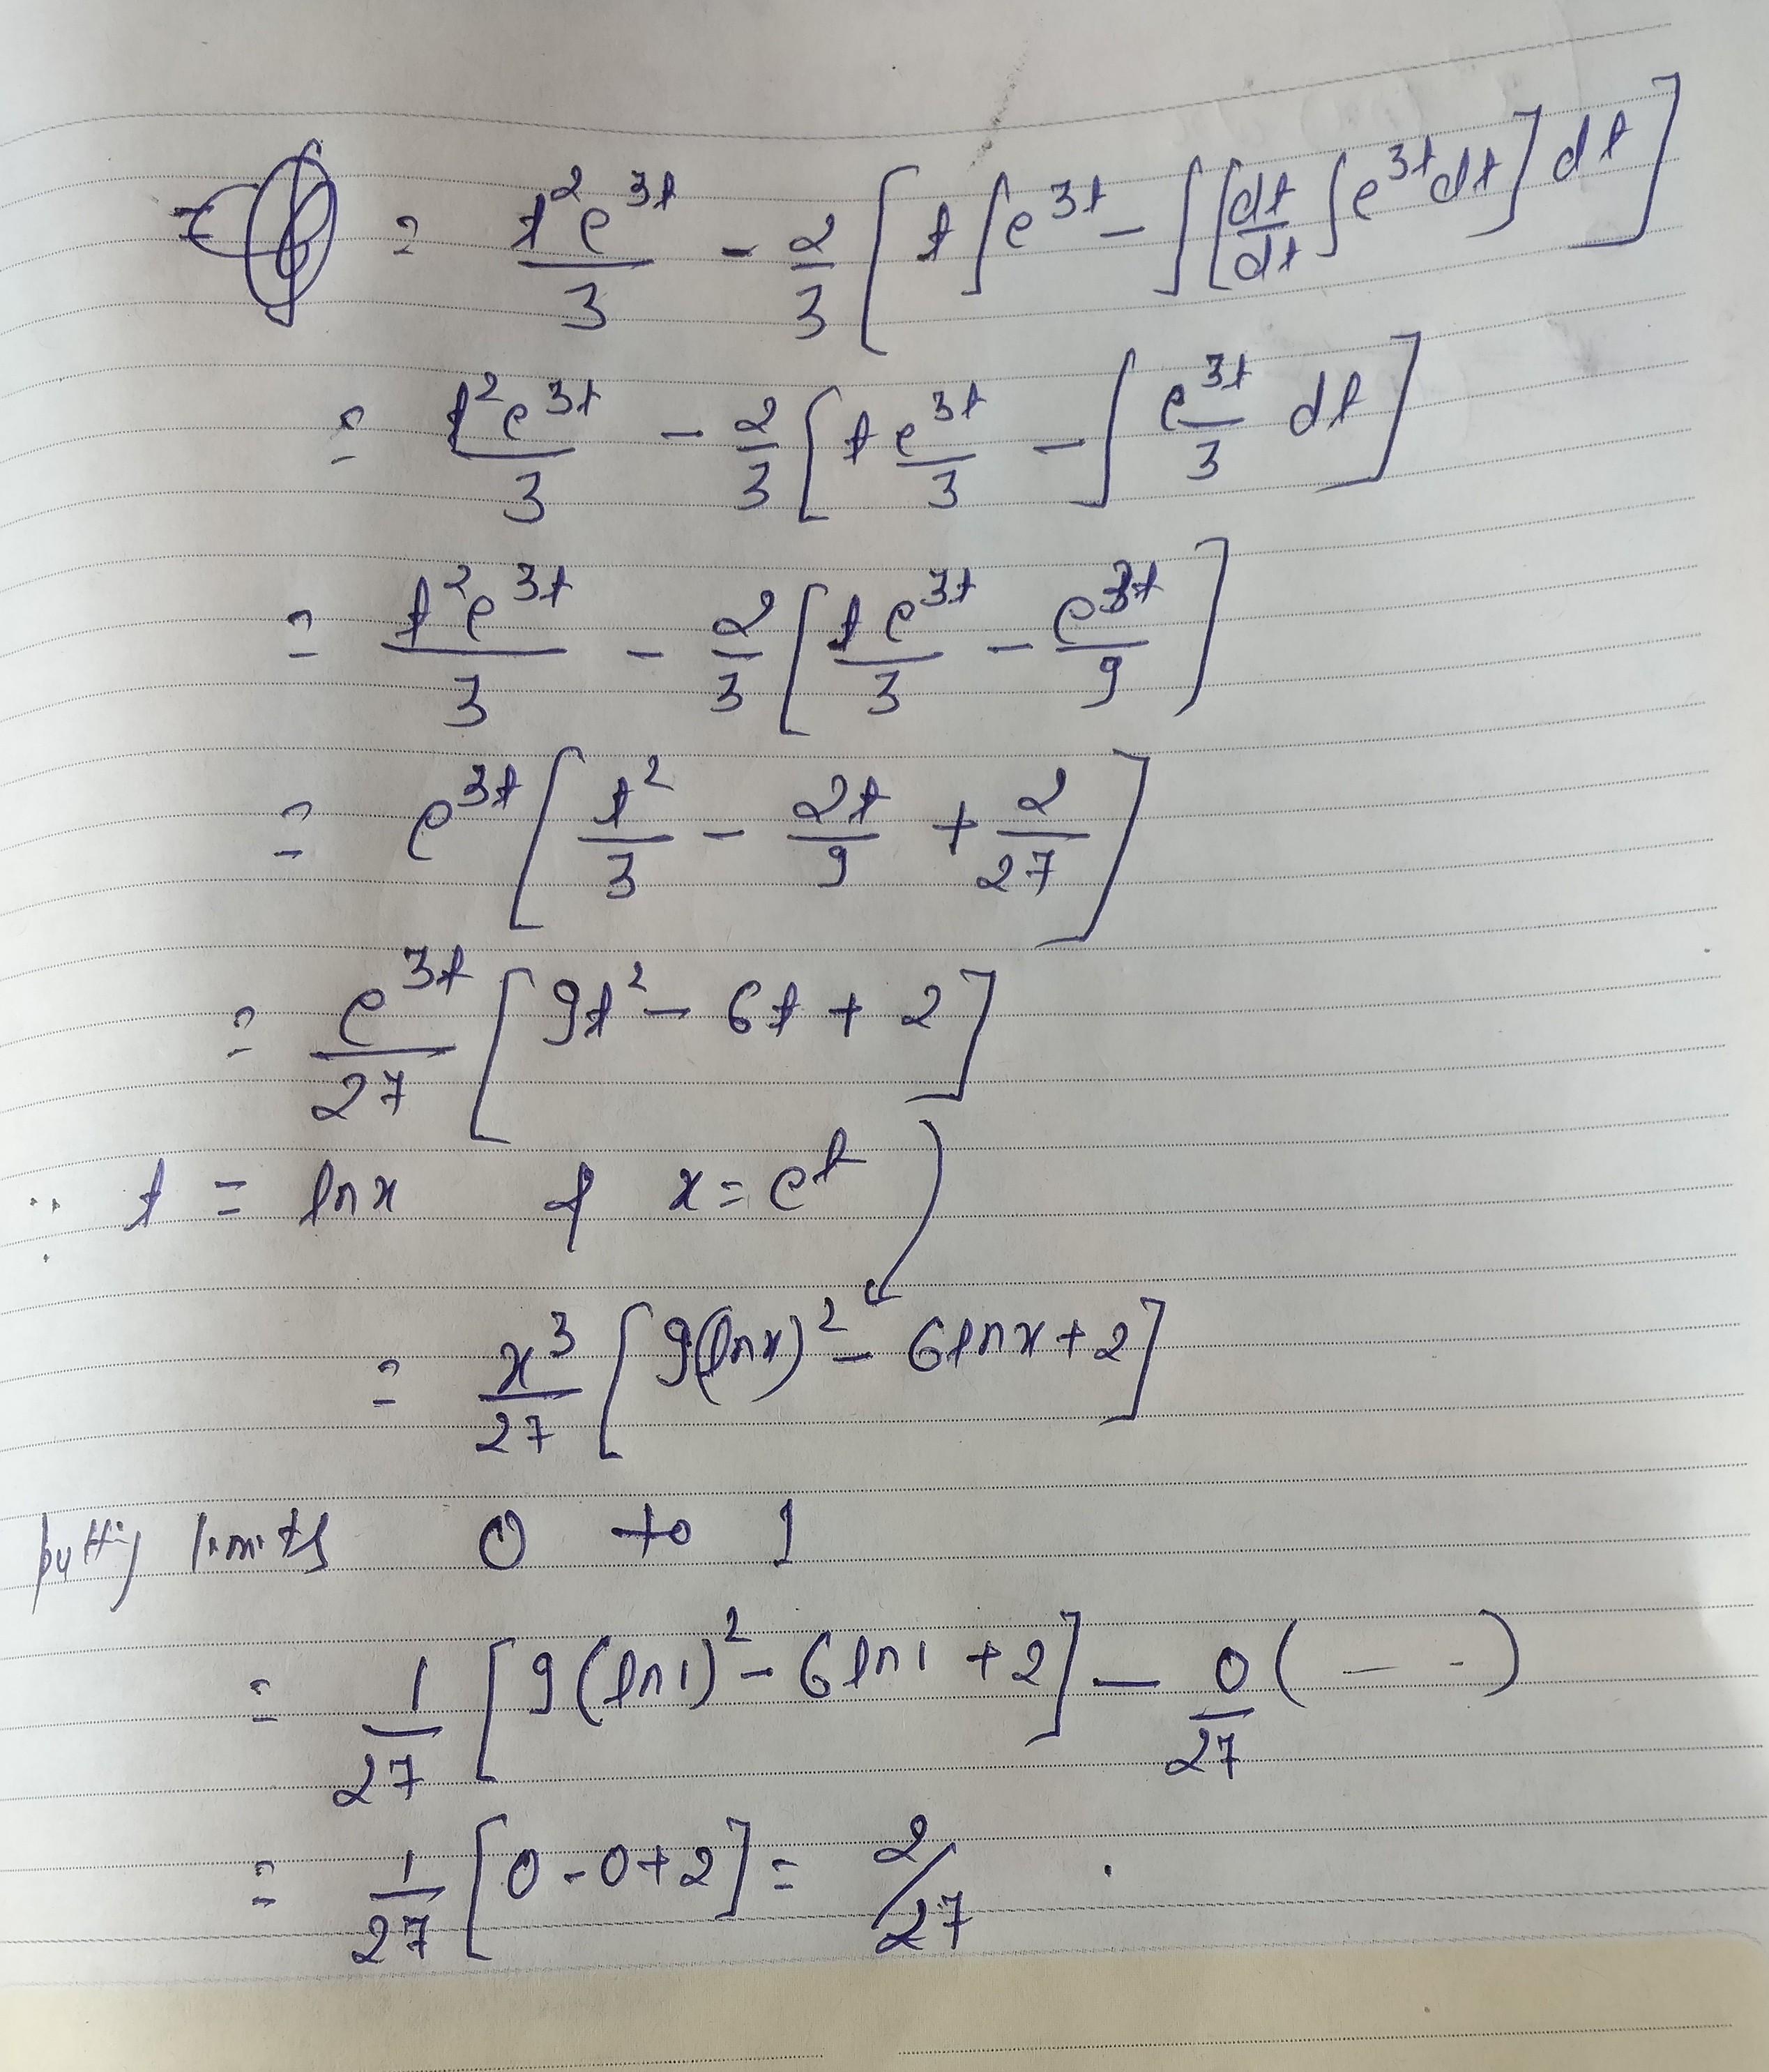 = t²e^3t/3 - 2/3 [t∫e^3t - ∫[dt/dt ∫e^3t dt] dt]
= t²e^3t/3 - 2/3 [t e^3t/3 - ∫ e^3t/3 dt]
= t²e^3t/3 - 2/3 [te^3t/3 - e^3t/9]
= e^3t [t²/3 - 2t/9 + 2/27]
= e^3t/27 [9t² - 6t + 2]
∵ t = lnx & x = e^t
= x³/27 [9(lnx)² - 6lnx + 2]
putting limits 0 to 1
= 1/27 [9(ln1)² - 6ln1 + 2] - 0/27 (- -)
= 1/27 [0-0+2] = 2/27